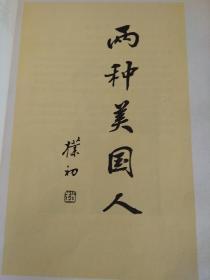 两种美国人
朴初